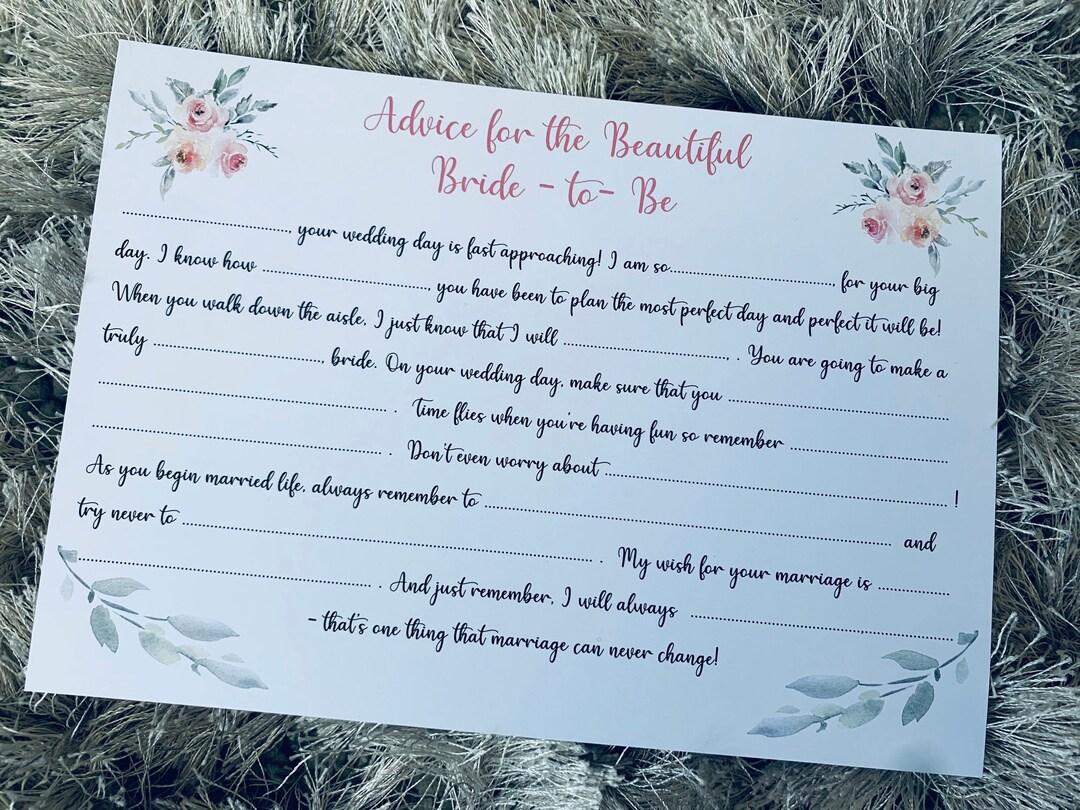 Advice for the Beautiful
Bride - to - Be
.............................. your wedding day is fast approaching! I am so.............................. for your big
day. I know how .............................. you have been to plan the most perfect day and perfect it will be!
When you walk down the aisle, I just know that I will .............................. . You are going to make a
truly .............................. bride. On your wedding day, make sure that you ..............................
.............................. . Time flies when you're having fun so remember ..............................
.............................. . Don't even worry about .............................. !
As you begin married life, always remember to .............................. and
try never to .............................. . My wish for your marriage is ..............................
.............................. . And just remember, I will always ..............................
- that's one thing that marriage can never change!